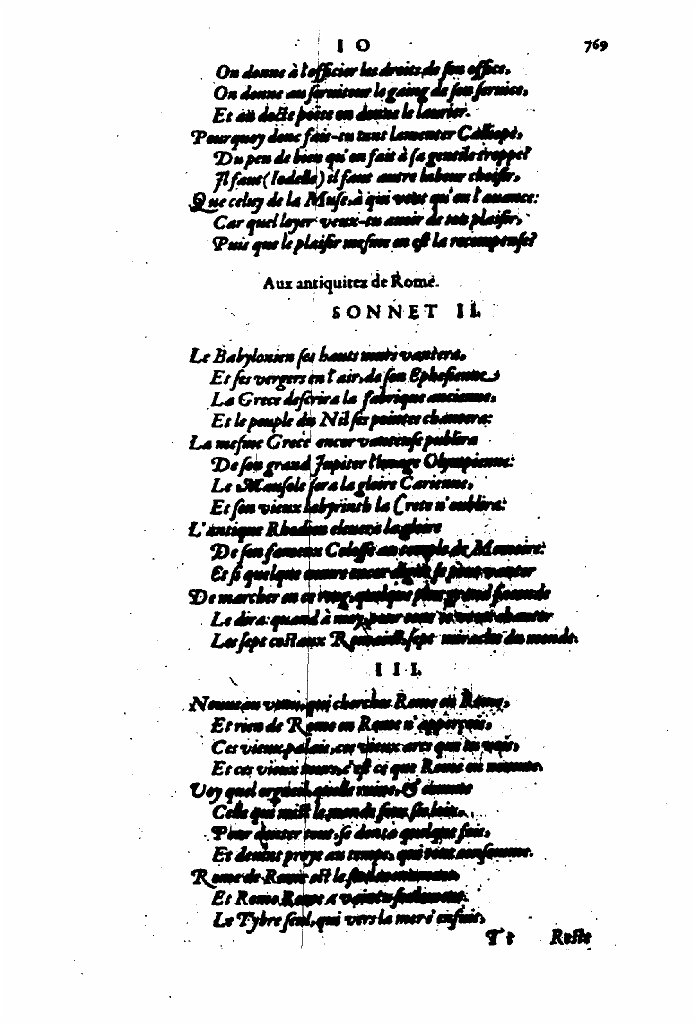 IO 769
On donne à l'officier les droits de son office,
On donne au seruiteur le gaing de son seruice,
Et au docte poëte on donne le laurier.
Pourquoy donc fais-tu tant lamenter Calliopé,
Du peu de bien qu'on fait à sa gentile troppe?
Il faut (Iodelle) il faut autre labeur choisir,
Que celuy de la Muse, à qui veut qu'on l'auance:
Car quel loyer veux-tu auoir de ton plaisir,
Puis que le plaisir mesme en est la recompense?
Aux antiquitez de Rome.
SONNET II.
Le Babylonien ses hauts murs vantera,
Et ses vergers en l'air, de son Ephesienne
La Grece descrira la fabrique ancienne,
Et le peuple du Nil ses pointes chantera:
La mesme Grece encor vanteuse publira
De son grand Jupiter l'image Olympienne:
Le Mausole sera la gloire Carienne,
Et son vieux labyrinth la Crete n'oublira:
L'antique Rhodien eleuera la gloire
De son fameux Colosse au temple de Memoire:
Et si quelque œuure encor digne se peut vanter
De marcher en ce rang, quelque plus grand faconde
Le dira: quand à moy, pour tous ie veux chanter
Les sept costaux Romains, sept miracles du monde.
III.
Nouueau venu, qui cherches Rome en Rome,
Et rien de Rome en Rome n'apperçois,
Ces vieux palais, ces vieux arcs que tu vois,
Et ces vieux murs, c'est ce que Rome on nomme.
Voy quel orgueil, quelle ruine, & comme
Celle qui mist le monde sous ses loix,
Pour donter tout, se donta quelque fois,
Et deuint proye au temps, qui tout consomme.
Rome de Rome est le seul monument,
Et Rome Rome a vaincu seulement.
Le Tybre seul, qui vers la mer s'enfuit,
Tt Reste